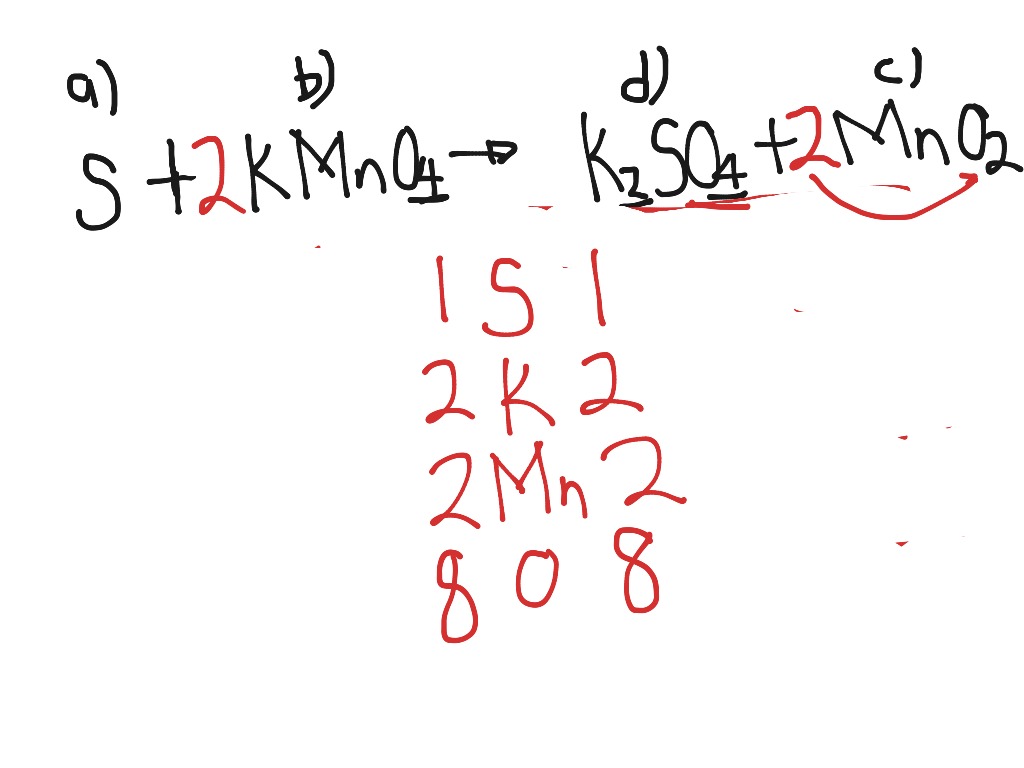 a) b) d) c)
S + 2KMnO₄ → K₂SO₄ + 2MnO₂
1 S 1
2 K 2
2 Mn 2
8 O 8